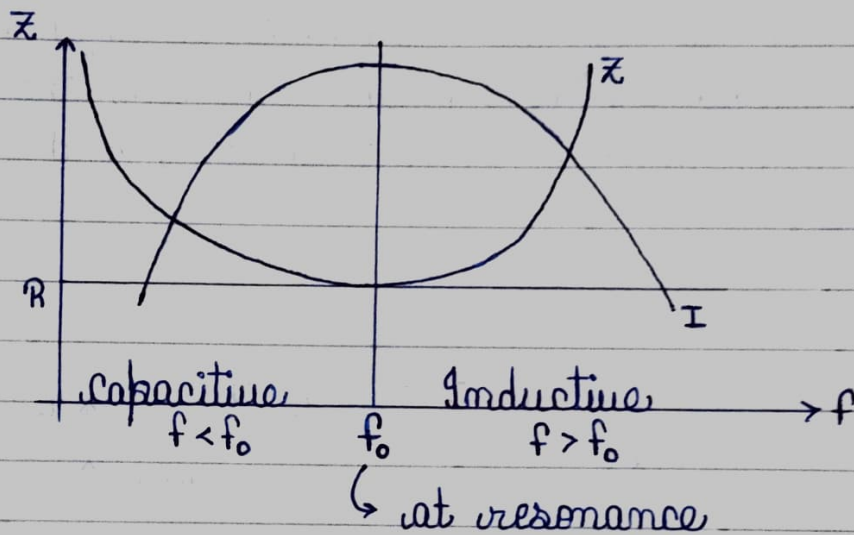 Z
Z
R
I
capacitive Inductive
f < f₀ f₀ f > f₀
f
↳ at resonance